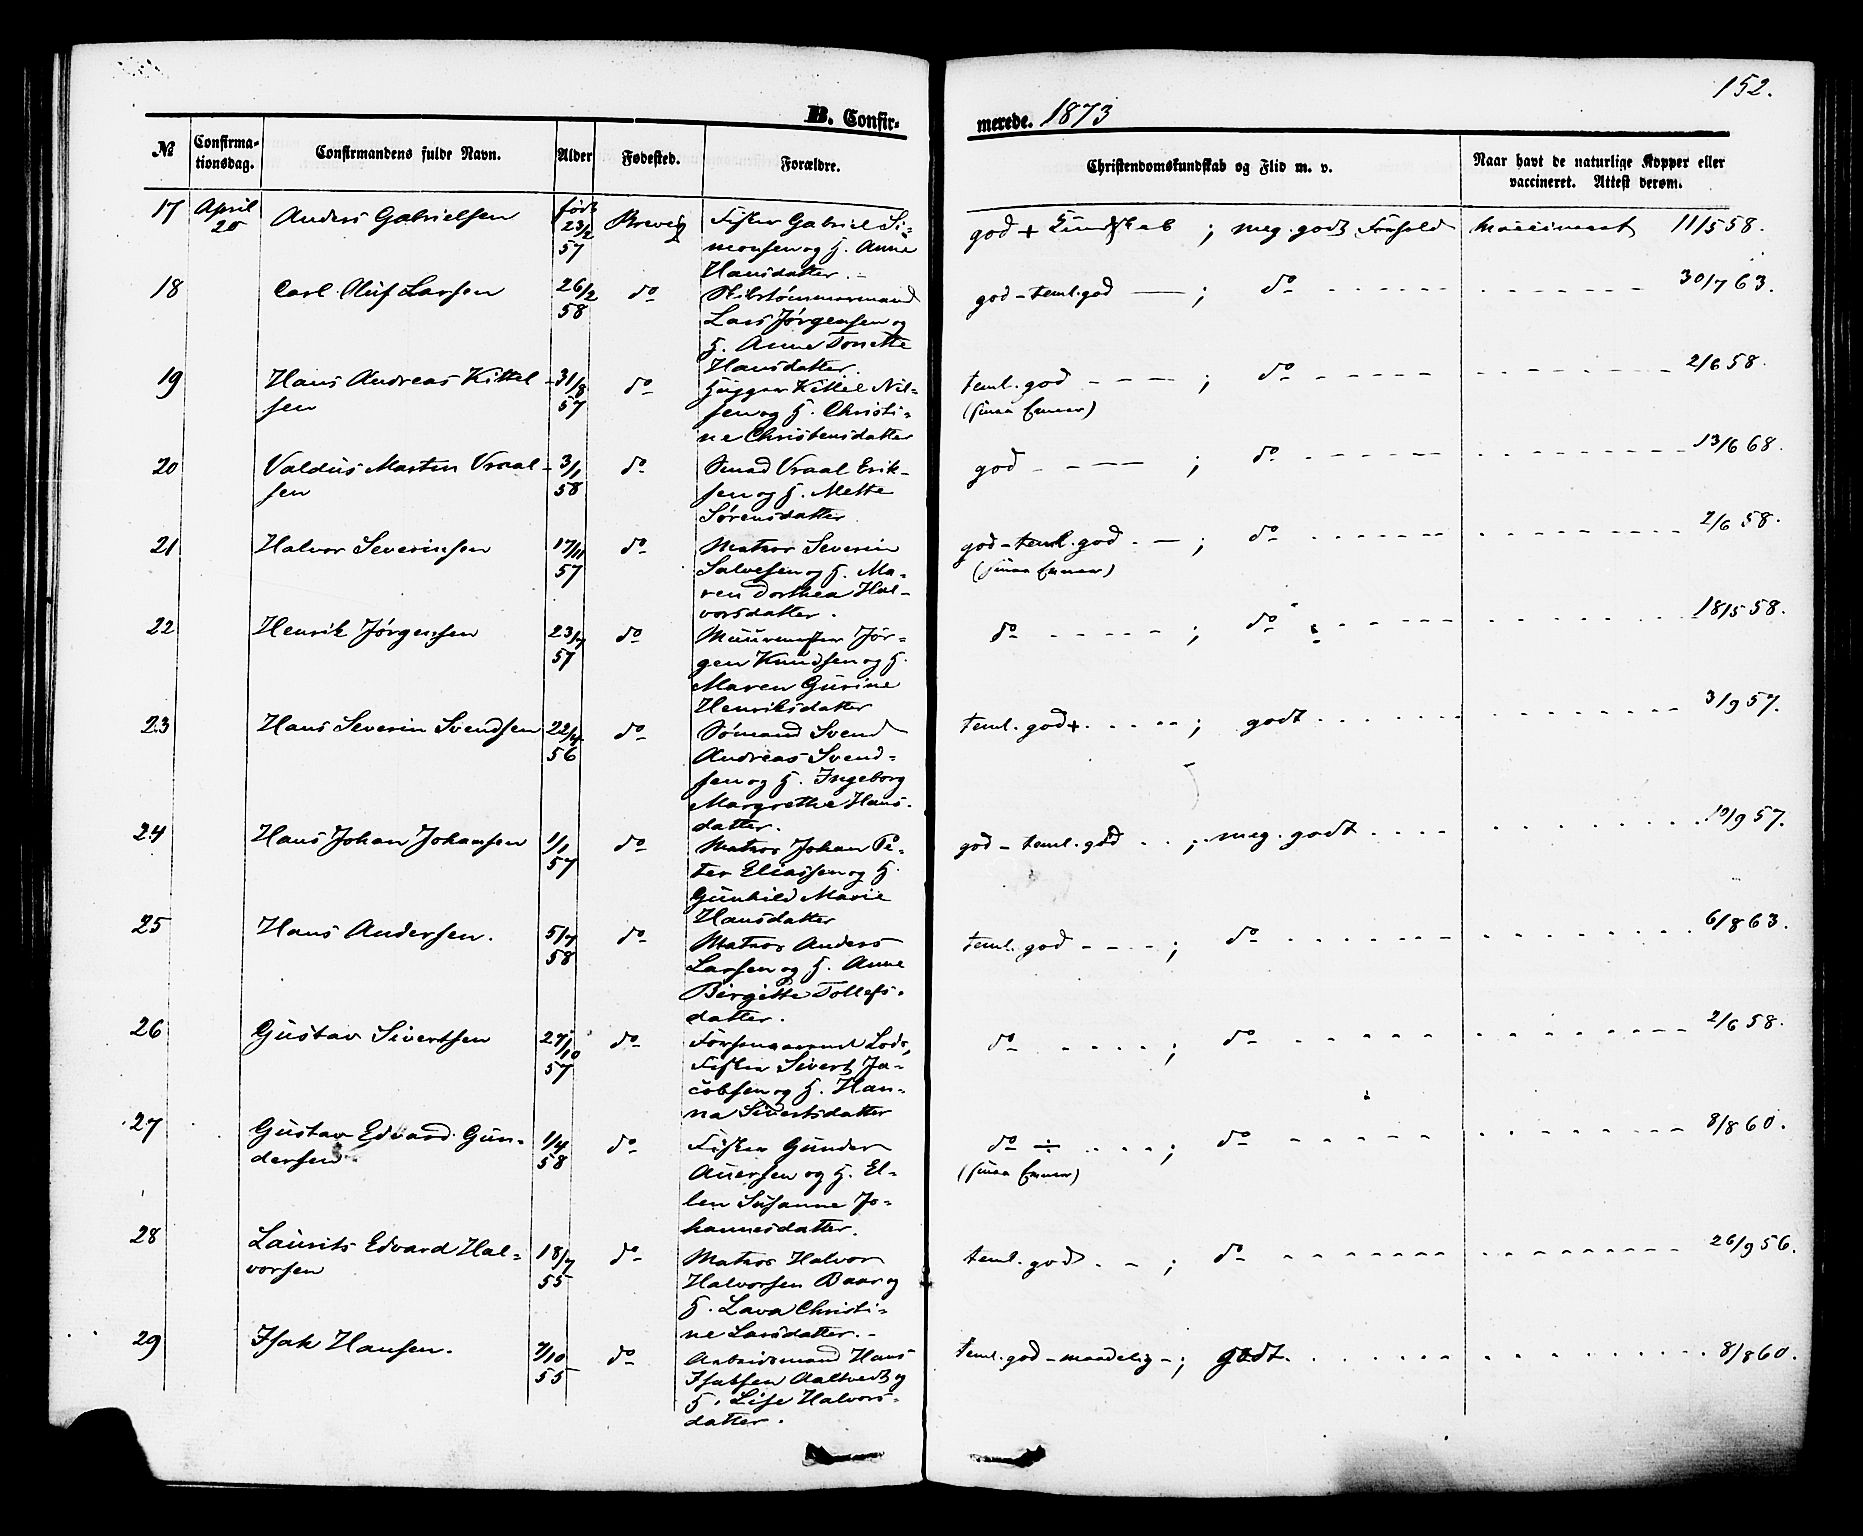 152.
B. Confir-
merede. 1873
№ Confirma-
tionsdag. Confirmandens fulde Navn. Alder Fødested. Forældre. Christendomskundskab og Flid m. v. Naar havt de naturlige Kopper eller
vaccineret. Attest derom.
17 April
20 Anders Gabrielsen født
23/2
57 Brevig Fisker Gabriel Si-
monsen og H. Anne
Hansdatter. god + Kundskab ; meg. godt Forhold vaccineret 11/5 58.
18 Carl Oluf Larsen 26/2
58 do Skibstømmermand
Lars Jørgensen og
H. Anne Tonette
Hansdatter. god - teml. god ; do 30/7 63.
19 Hans Andreas Kittel-
sen 31/8
57 do Hugger Kittel Nil-
sen og H. Christi-
ne Christensdatter teml. god ; do 2/6 58.
(smaa Evner)
20 Valdus Martin Vraal-
sen 3/1
58 do Smed Vraal Erik-
sen og H. Mette
Sørensdatter god ; do 13/6 68.
21 Halvor Severinsen 17/11
57 do Matros Severin
Salvesen og H. Ma-
ren Dorthea Hal-
vorsdatter. god - teml. god ; do 2/6 58.
(smaa Evner)
22 Henrik Jørgensen 23/7
57 do Muurmester Jør-
gen Knudsen og H.
Maren Gurine
Henriksdatter do ; do 18/5 58.
23 Hans Severin Svendsen 22/4
56 do Sømand Svend
Andreas Svend-
sen og H. Ingeborg
Margrethe Hans-
datter. teml. god + ; godt 3/9 57.
24 Hans Johan Johansen 1/1
57 do Matros Johan Pe-
ter Eliassen og H.
Gunhild Marie
Hansdatter god - teml. god ; meg. godt 10/9 57.
25 Hans Andersen. 5/7
58 do Matros Anders
Larsen og H. Anne
Birgitte Tollefs-
datter. teml. god ; do 6/8 63.
26 Gustav Sivertsen 27/10
57 do Lods,
Fisker Sivert Ja-
cobsen og H. Han-
na Sivertsdatter do ; do 2/6 58.
27 Gustav Edvard Gun-
dersen 1/4
58 do Fisker Gunder
Auersen og H. El-
len Susanne Jo-
hannesdatter. do ÷ ; do 8/8 60.
(smaa Evner)
28 Laurits Edvard Hal-
vorsen 18/7
55 do Matros Halvor
Halvorsen Baar og
H. Lava Christi-
ne Larsdatter. teml. god ; do 26/9 56.
29 Isak Hansen. 7/10
55 do Arbeidsmand Hans
Isaksen Aaltvedt og
H. Lise Halvors-
datter. teml. god - maadelig ; godt. 8/8 60.